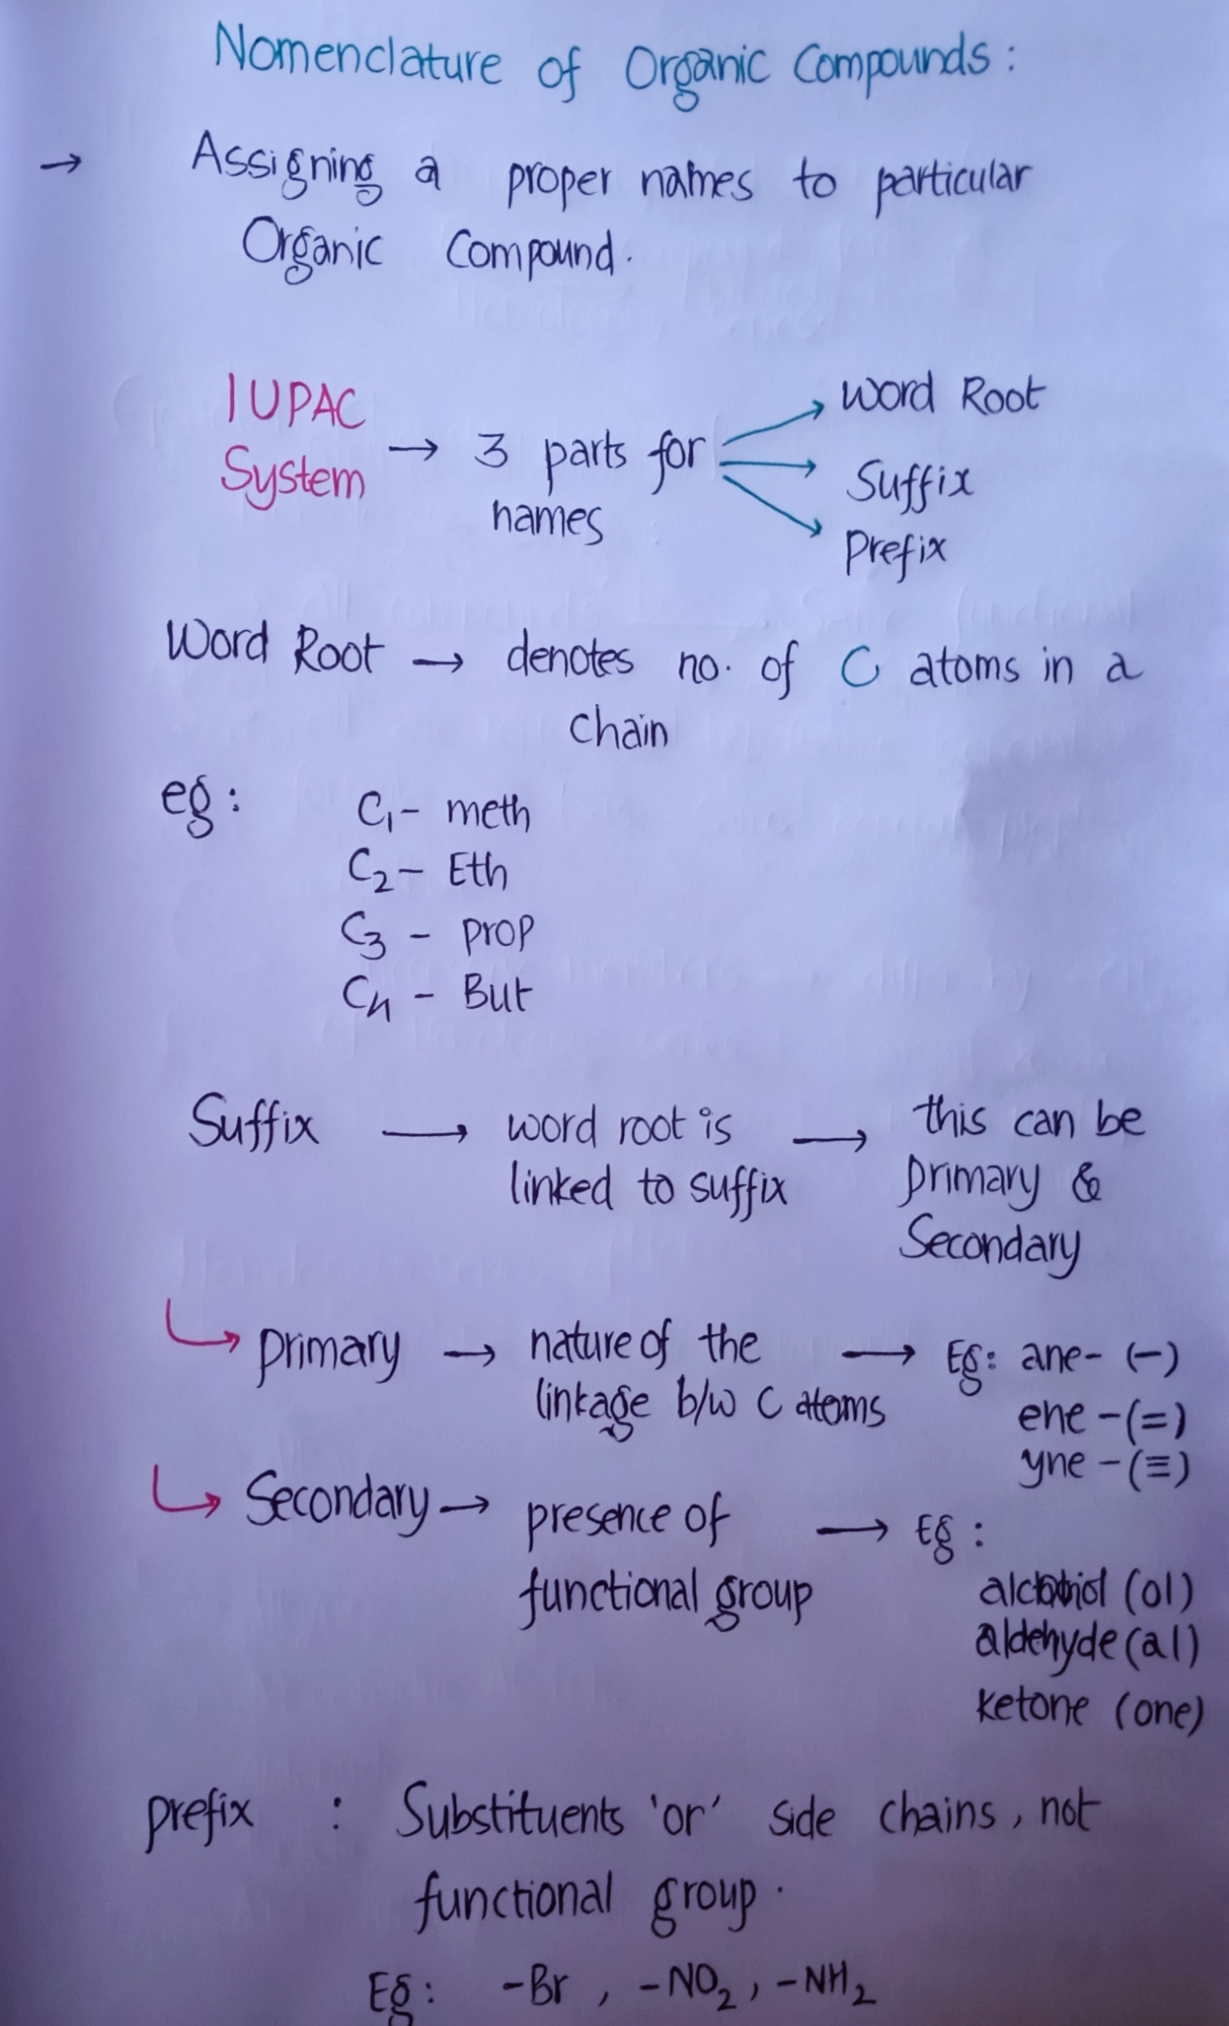 Nomenclature of Organic Compounds :
→ Assigning a proper names to particular
Organic Compound.
IUPAC System → 3 parts for names
Word Root
Suffix
Prefix
Word Root → denotes no. of C atoms in a
chain
eg : C₁ - meth
C₂ - Eth
C₃ - prop
C₄ - But
Suffix → word root is linked to suffix → this can be primary & Secondary
↳ primary → nature of the linkage b/w C atoms → Eg: ane - (-)
ene - (=)
yne - (≡)
↳ Secondary → presence of functional group → Eg :
(ol)
aldehyde (al)
ketone (one)
prefix : Substituents 'or' side chains, not
functional group.
Eg : -Br , -NO₂ , -NH₂